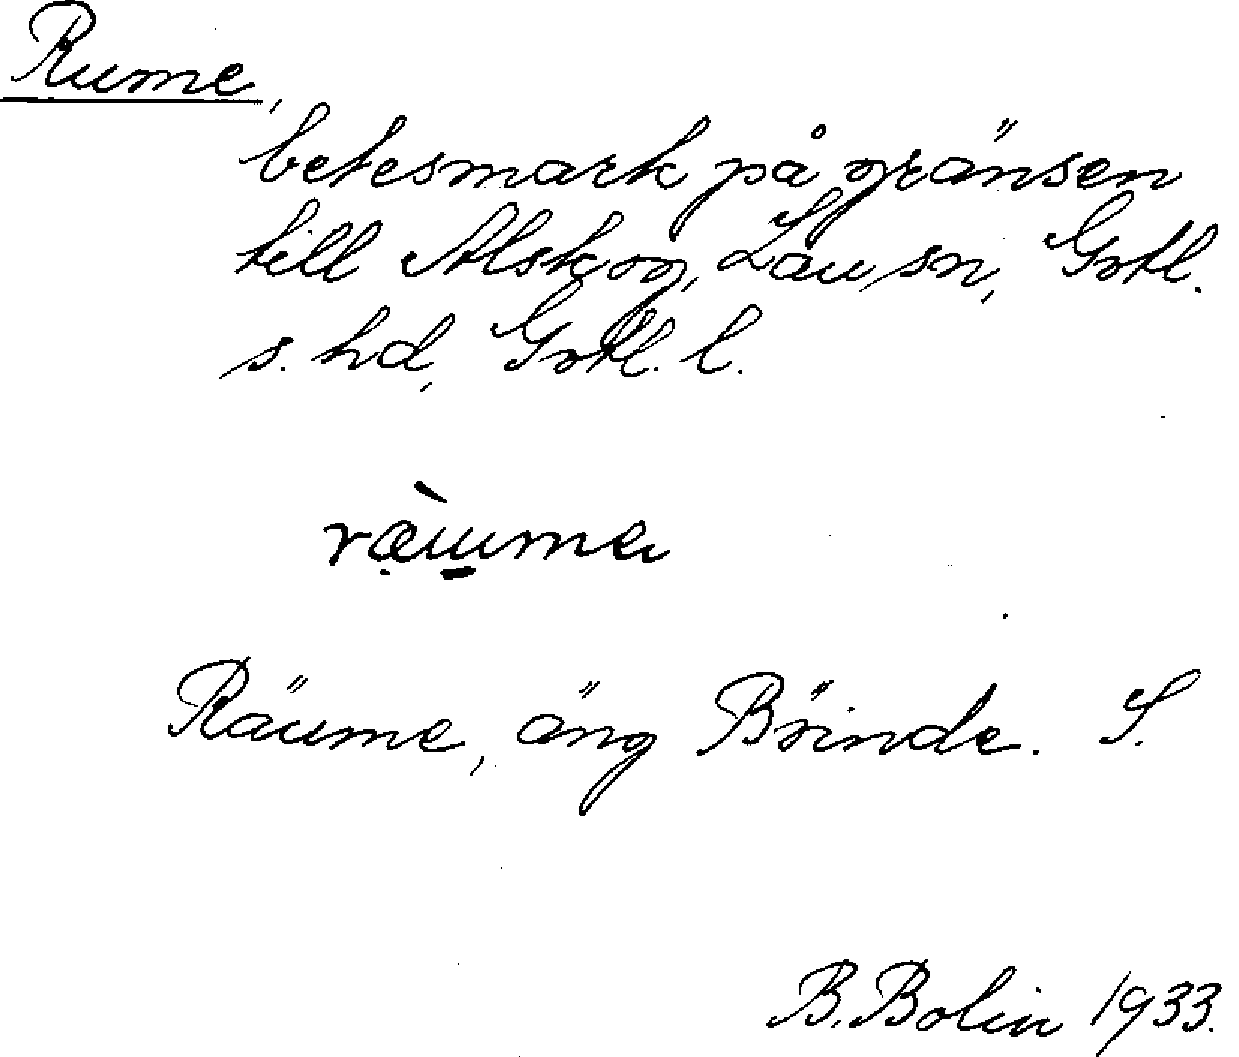 Rume,
betesmark på gränsen
till Alskog, Lau sn, Gotl.
s. hd, Gotl. l.
ræ̀u̠ma
Räume, äng Börinde. S.
B. Bolin 1933.